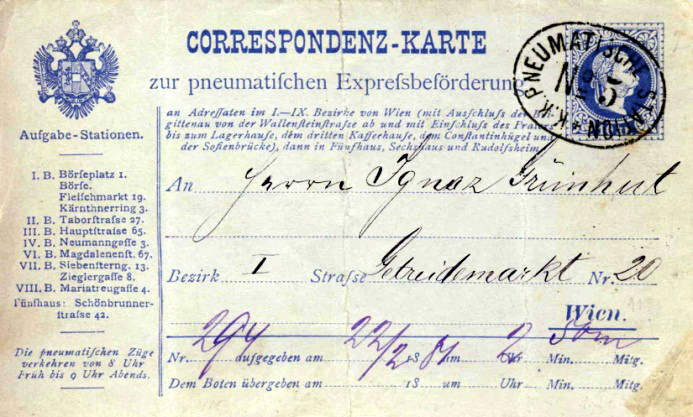 CORRESPONDENZ-KARTE
zur pneumatischen Expressbeförderung
K.K. PNEUMATISCHE STATION
No 5
an Adressaten im I.—IX. Bezirke von Wien (mit Ausschluss der Bri-
gittenau von der Wallensteinstrasse ab und mit Einschluss des
bis zum Lagerhause, dem dritten Kaffeehause, dem Constantinhügel und
der Sofienbrücke), dann in Fünfhaus, Sechshaus und Rudolfsheim
Aufgabe-Stationen.
I. B. Börseplatz 1.
Börse.
Fleischmarkt 19.
Kärnthnerring 3.
II. B. Taborstrasse 27.
III. B. Hauptstrasse 65.
IV. B. Neumanngasse 3.
VI. B. Magdalenenst. 67.
VII. B. Siebensterng. 13.
Zieglergasse 8.
VIII. B. Mariatreugasse 4.
Fünfhaus: Schönbrunner-
strasse 42.
Die pneumatischen Züge
verkehren von 8 Uhr
Früh bis 9 Uhr Abends.
An Herrn Ignaz Grünhut
Bezirk I Strasse Getreidemarkt Nr. 20
Wien.
Nr. 294 aufgegeben am 22/2 18 81 um 2 Uhr 50m Min. Mitg.
Dem Boten übergeben am 18 um Uhr Min. Mitg.